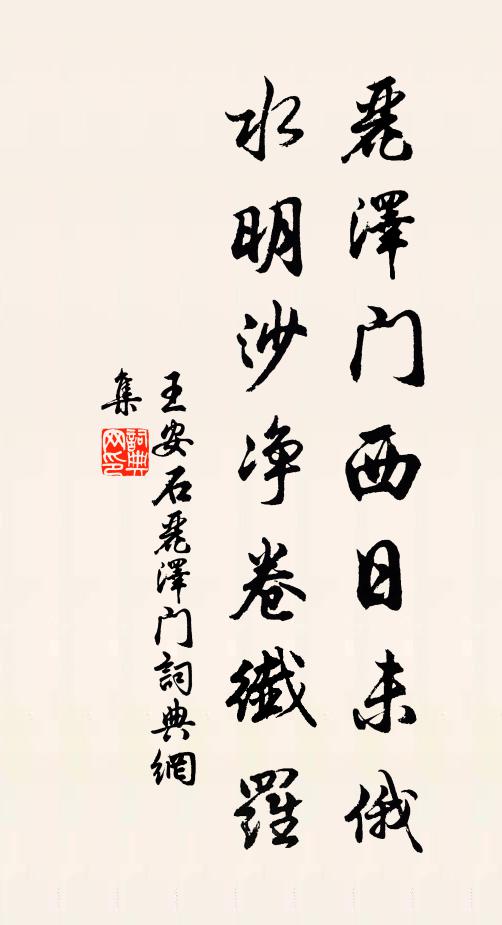 麗澤门西日未俄
水明沙净卷纖羅
王安石麗澤门詞典網
集
詞典
网印